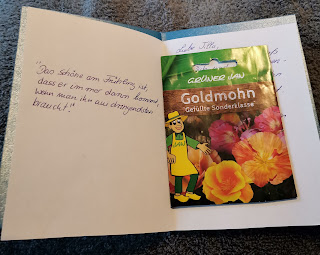 "Das schöne am Frühling ist,
dass er immer dann kommt,
wenn man ihn am dringendsten
braucht!"
Liebe
GRÜNER JAN
Goldmohn
"Gefüllte Sonderklasse"